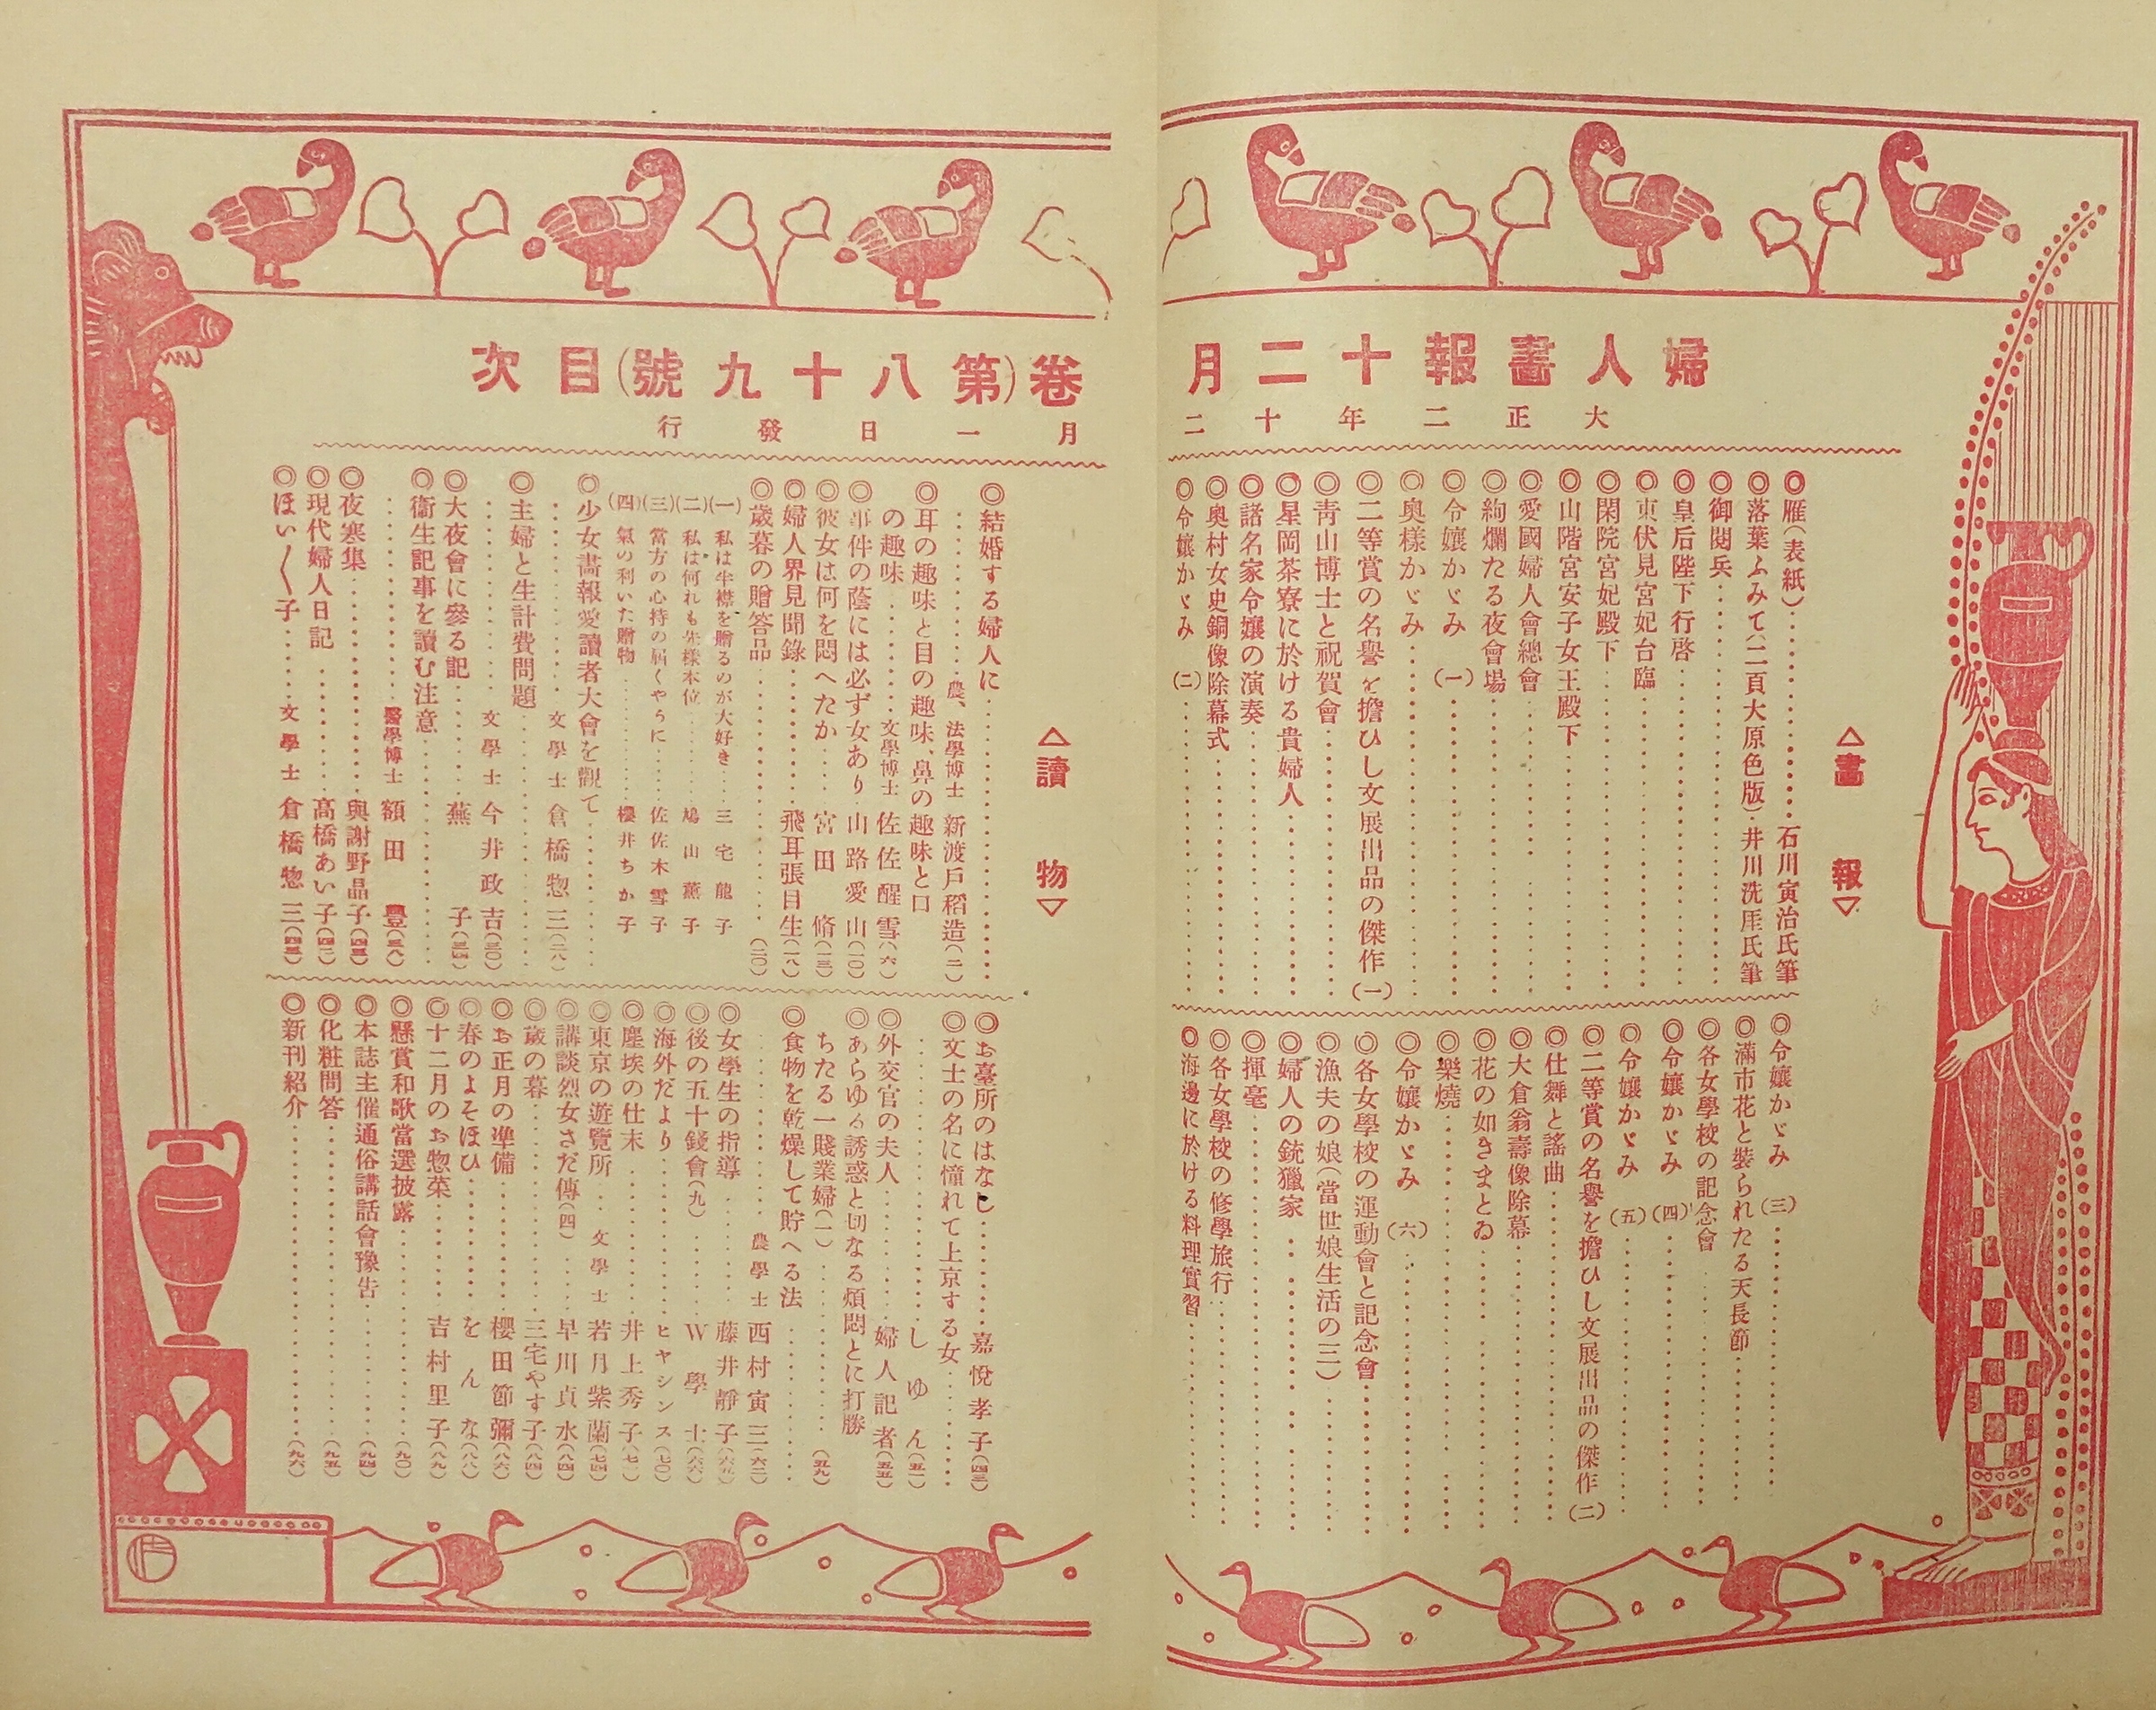 婦人畫報十二月卷(第八十九號)目次
大正二年十二月一日發行
△畫報▽
◎雁(表紙)……石川寅治氏筆
◎落葉ふみて(二頁大原色版)…井川洗厓氏筆
◎御閱兵……
◎皇后陛下行啓……
◎東伏見宮妃台臨……
◎閑院宮妃殿下……
◎山階宮安子女王殿下……
◎愛國婦人會總會……
◎絢爛たる夜會場……
◎令孃かゞみ(一)……
◎奧樣かゞみ……
◎二等賞の名譽を擔ひし文展出品の傑作(一)
◎靑山博士と祝賀會……
◎星岡茶寮に於ける貴婦人……
◎諸名家令孃の演奏……
◎奧村女史銅像除幕式……
◎令孃かゞみ(二)……
◎令孃かゞみ(三)……
◎滿市花と裝られたる天長節……
◎各女學校の記念會……
◎令孃かゞみ(四)……
◎令孃かゞみ(五)……
◎二等賞の名譽を擔ひし文展出品の傑作(二)
◎仕舞と謠曲……
◎大倉翁壽像除幕……
◎花の如きまとゐ……
◎樂燒……
◎令孃かゞみ(六)……
◎各女學校の運動會と記念會……
◎漁夫の娘(當世娘生活の三)……
◎婦人の銃獵家……
◎揮毫……
◎各女學校の修學旅行……
◎海邊に於ける料理實習……
△讀物▽
◎結婚する婦人に……
……農、法學博士 新渡戶稻造(二)
◎耳の趣味と目の趣味、鼻の趣味と口
の趣味……文學博士 佐佐醒雪(六)
◎事件の蔭には必ず女あり…山路愛山(一〇)
◎彼女は何を悶へたか……宮田脩(一三)
◎婦人界見聞錄……飛耳張目生(一八)
◎歲暮の贈答品……(二〇)
(一)私は半襟を贈るのが大好き……三宅龍子
(二)私は何れも先樣本位……鳩山薰子
(三)當方の心持の屆くやうに……佐佐木雪子
(四)氣の利いた贈物……櫻井ちか子
◎少女畫報愛讀者大會を觀て……
……文學士 倉橋惣三(二八)
◎主婦と生計費問題……
……文學士 今井政吉(三〇)
◎大夜會に參る記……燕子(三四)
◎衞生記事を讀む注意……
……醫學博士 額田豐(三八)
◎夜寒集……與謝野晶子
◎現代婦人日記……高橋あい子
◎ほい〱子……文學士 倉橋惣三
◎お臺所のはなし……嘉悅孝子
◎文士の名に憧れて上京する女……
……しゆん(五一)
◎外交官の夫人……婦人記者(五五)
◎あらゆる誘惑と切なる煩悶とに打勝
ちたる一賤業婦(一)……(五九)
◎食物を乾燥して貯へる法……
……農學士 西村寅三(六二)
◎女學生の指導……藤井靜子(六五)
◎後の五十錢會(九)……W學士(六六)
◎海外だより……ヒヤシンス(七〇)
◎塵埃の仕末……井上秀子(七一)
◎東京の遊覽所…文學士 若月紫蘭(七四)
◎講談烈女さだ傳(四)……早川貞水(八四)
◎歲の暮……三宅やす子(八四)
◎お正月の準備……櫻田節彌(八六)
◎春のよそほひ……をんな(八八)
◎十二月のお惣菜……吉村里子(八九)
◎懸賞和歌當選披露……(九〇)
◎本誌主催通俗講話會豫告……(九四)
◎化粧問答……(九五)
◎新刊紹介……(九六)